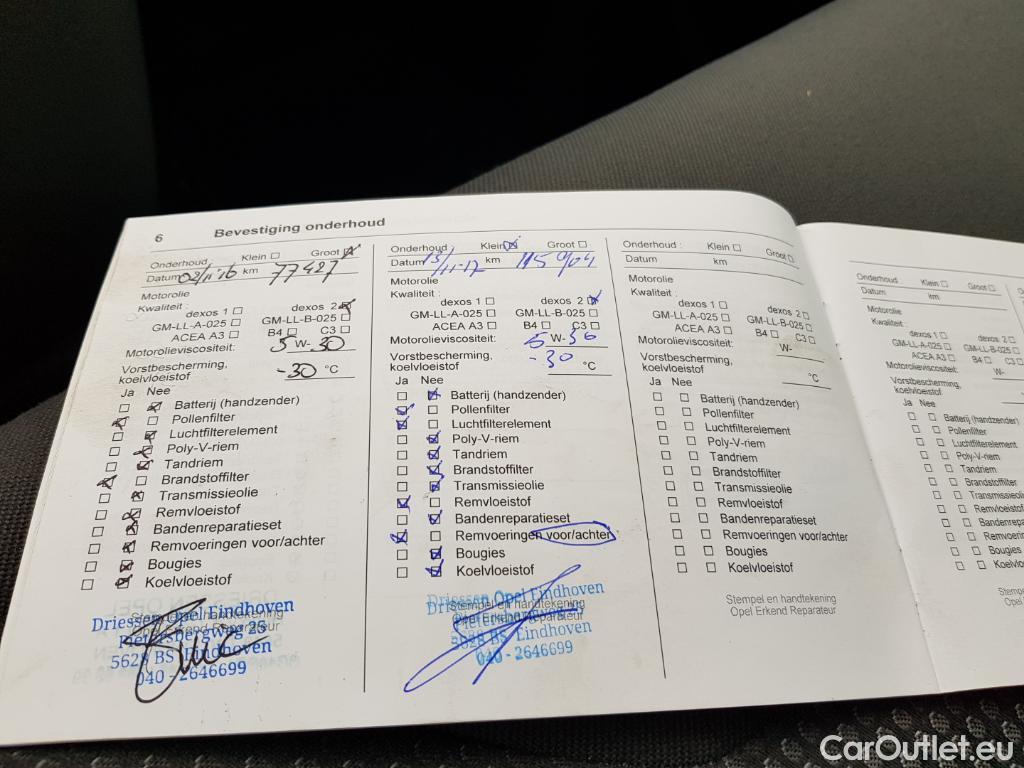 6 Bevestiging onderhoud
Onderhoud : Klein ☐ Groot ☒
Datum 02/11-16 km 77427
Motorolie
Kwaliteit :
dexos 1 ☐ dexos 2 ☒
GM-LL-A-025 ☐ GM-LL-B-025 ☐
ACEA A3 ☐ B4 ☐ C3 ☐
Motorolieviscositeit: 5 W- 30
Vorstbescherming,
koelvloeistof -30 °C
Ja Nee
☐ ☒ Batterij (handzender)
☒ ☐ Pollenfilter
☐ ☒ Luchtfilterelement
☐ ☒ Poly-V-riem
☐ ☒ Tandriem
☒ ☐ Brandstoffilter
☐ ☒ Transmissieolie
☐ ☒ Remvloeistof
☐ ☒ Bandenreparatieset
☐ ☒ Remvoeringen voor/achter
☐ ☒ Bougies
☐ ☒ Koelvloeistof
Stempel en handtekening
Opel Erkend Reparateur
Driessen Opel Eindhoven
Pietersbergweg 25
5628 BS Eindhoven
040 - 2646699
Onderhoud : Klein ☒ Groot ☐
Datum 13/11-17 km 115904
Motorolie
Kwaliteit :
dexos 1 ☐ dexos 2 ☒
GM-LL-A-025 ☐ GM-LL-B-025 ☐
ACEA A3 ☐ B4 ☐ C3 ☐
Motorolieviscositeit: 5 W- 30
Vorstbescherming,
koelvloeistof -30 °C
Ja Nee
☐ ☒ Batterij (handzender)
☒ ☐ Pollenfilter
☒ ☐ Luchtfilterelement
☐ ☒ Poly-V-riem
☐ ☒ Tandriem
☐ ☒ Brandstoffilter
☐ ☒ Transmissieolie
☒ ☐ Remvloeistof
☐ ☒ Bandenreparatieset
☒ ☐ Remvoeringen voor/achter
☐ ☒ Bougies
☐ ☒ Koelvloeistof
Stempel en handtekening
Opel Erkend Reparateur
Driessen Opel Eindhoven
5628 BS Eindhoven
040 - 2646699
Onderhoud : Klein ☐ Groot ☐
Datum km
Motorolie
Kwaliteit :
dexos 1 ☐ dexos 2 ☐
GM-LL-A-025 ☐ GM-LL-B-025 ☐
ACEA A3 ☐ B4 ☐ C3 ☐
Motorolieviscositeit: W-
Vorstbescherming,
koelvloeistof °C
Ja Nee
☐ ☐ Batterij (handzender)
☐ ☐ Pollenfilter
☐ ☐ Luchtfilterelement
☐ ☐ Poly-V-riem
☐ ☐ Tandriem
☐ ☐ Brandstoffilter
☐ ☐ Transmissieolie
☐ ☐ Remvloeistof
☐ ☐ Bandenreparatieset
☐ ☐ Remvoeringen voor/achter
☐ ☐ Bougies
☐ ☐ Koelvloeistof
Stempel en handtekening
Opel Erkend Reparateur
Onderhoud : Klein ☐ Groot ☐
Datum km
Motorolie
Kwaliteit :
dexos 1 ☐ dexos 2 ☐
GM-LL-A-025 ☐ GM-LL-B-025 ☐
ACEA A3 ☐ B4 ☐ C3 ☐
Motorolieviscositeit: W-
Vorstbescherming,
koelvloeistof
Ja Nee
☐ ☐ Batterij (handzender)
☐ ☐ Pollenfilter
☐ ☐ Luchtfilterelement
☐ ☐ Poly-V-riem
☐ ☐ Tandriem
☐ ☐ Brandstoffilter
☐ ☐ Transmissieolie
☐ ☐ Remvloeistof
☐ ☐ Bandenrepara
☐ ☐ Remvoerin
☐ ☐ Bougies
☐ ☐ Koelvlo
Stempe
Opel
CarOutlet.eu